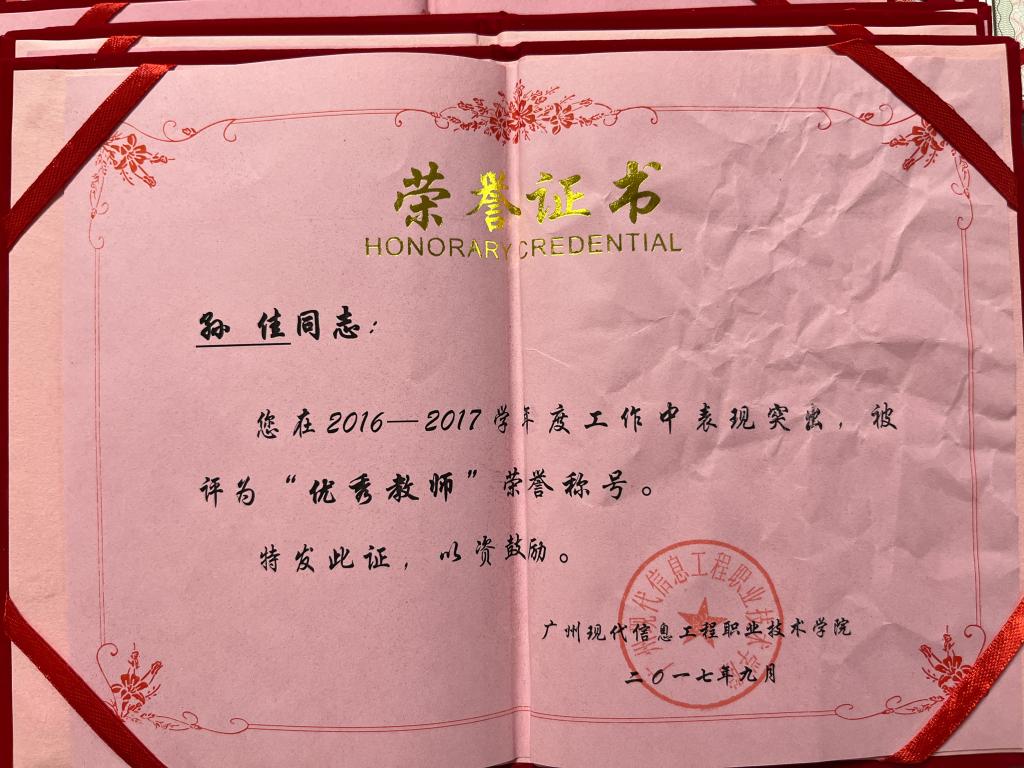 荣誉证书
HONORARY CREDENTIAL
孙 佳同志：
您在2016—2017学年度工作中表现突出，被
评为“优秀教师”荣誉称号。
特发此证，以资鼓励。
广州现代信息工程职业技术学院
广州现代信息工程职业技术学院
二〇一七年九月